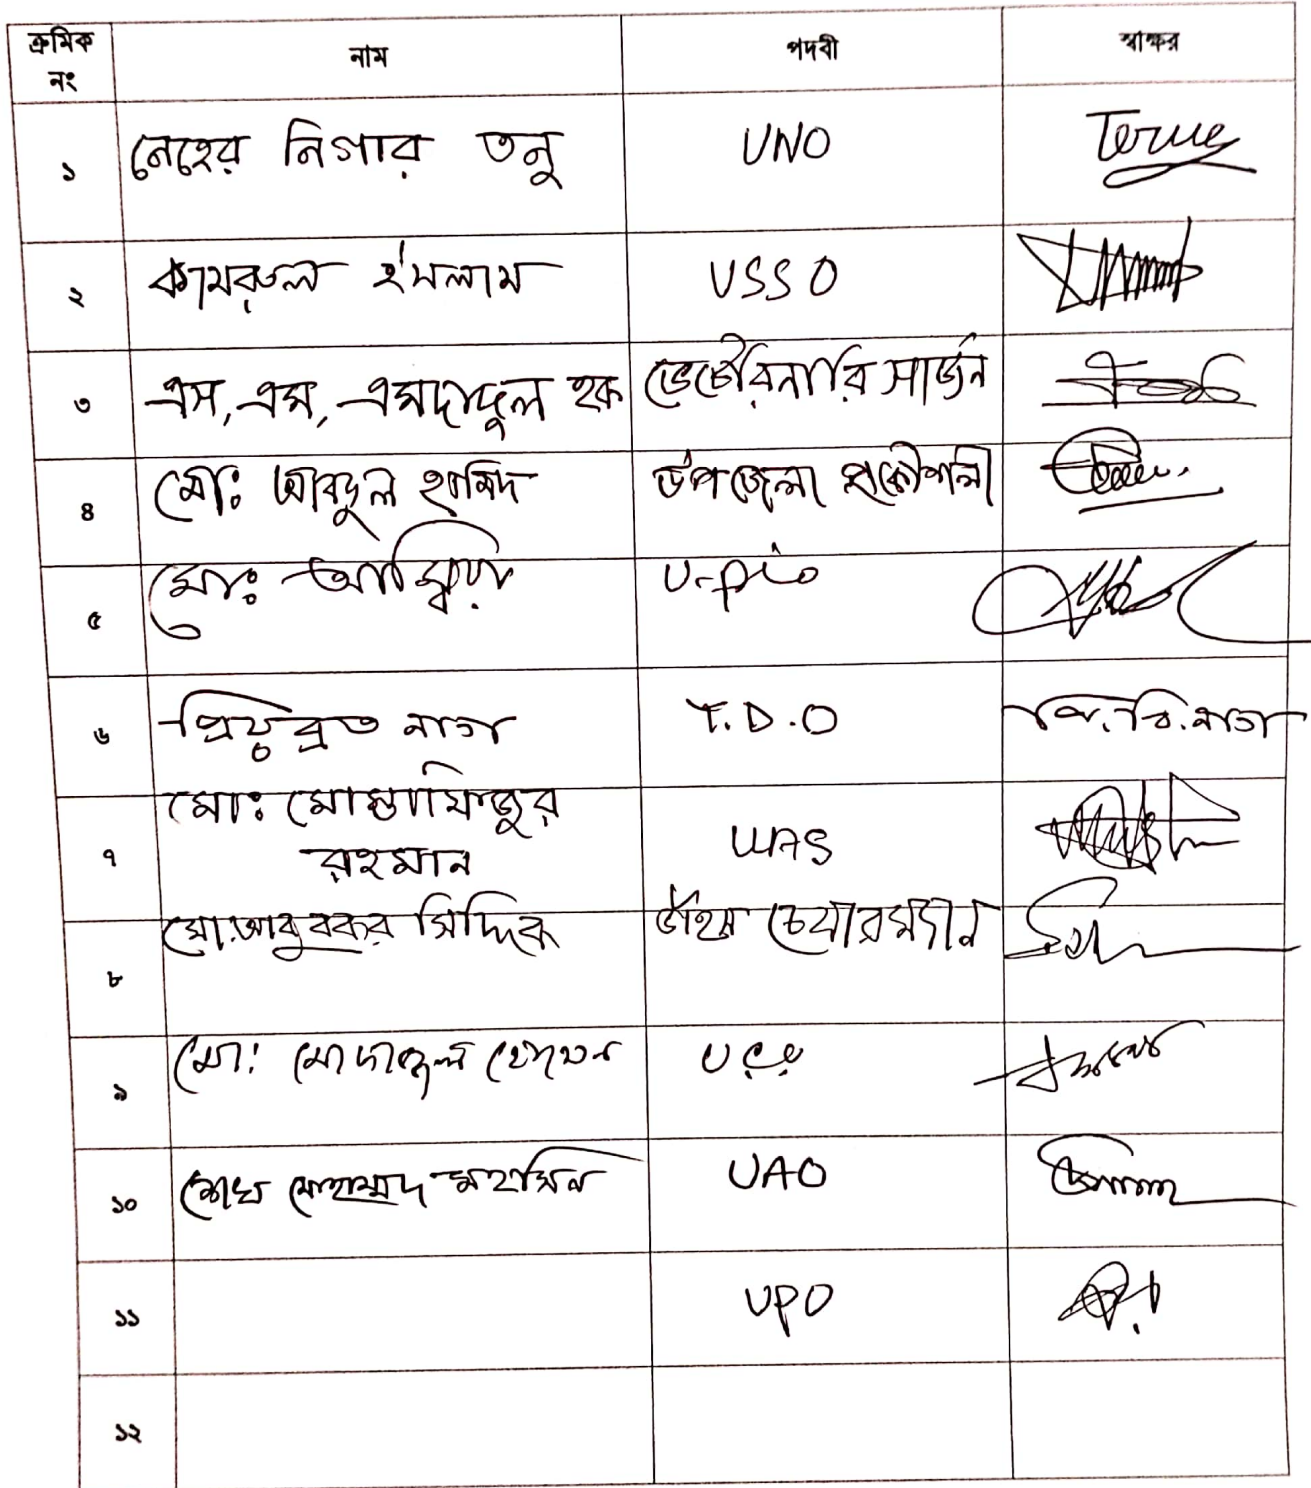 ক্রমিক নং নাম পদবী স্বাক্ষর
১ নেহের নিগার তনু UNO
২ কামরুল ইসলাম USSO
৩ এস, এম, এমদাদুল হক ভেটেরিনারি সার্জন
৪ মোঃ আবদুল হামিদ উপজেলা প্রকৌশলী
৫ মোঃ আম্বিয়া
৬ প্রিয়ব্রত নাগ T.D.O পি.বি.নাগ
৭ মোঃ মোস্তাফিজুর
রহমান
৮ মো.আবু বকর সিদ্দিক ভাইস চেয়ারম্যান
৯ মো:
১০ শেখ মোহাম্মদ মহসিন UAO
১১ UPO
১২